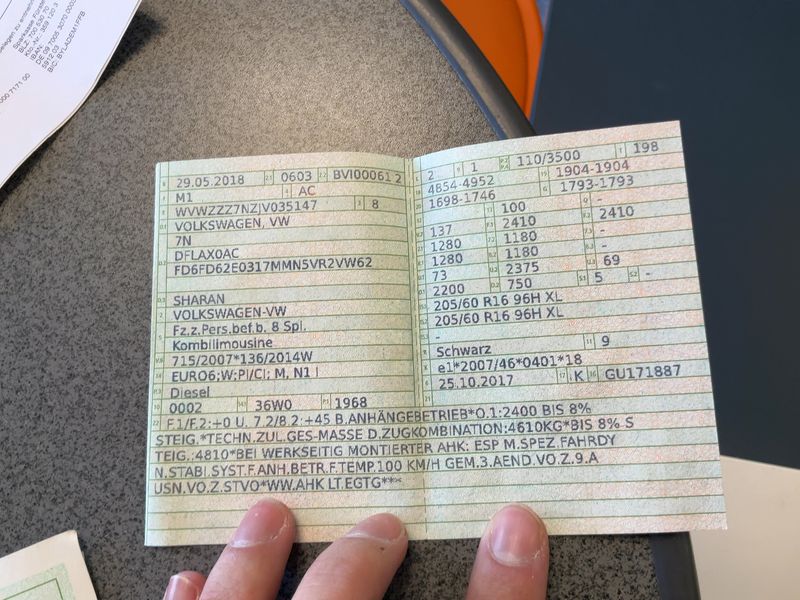 Sparkasse
BLZ: 700 530 70
IBAN:
BIC: BYLADEM1FFB
29.05.2018 2.1 0603 2.2 BVI00061 2
M1 4 AC
WVWZZZ7NZJV035147 3 8
VOLKSWAGEN, VW
7N
DFLAX0AC
FD6FD62E0317MMN5VR2VW62
SHARAN
VOLKSWAGEN-VW
Fz.z.Pers.bef.b. 8 Spl.
Kombilimousine
715/2007*136/2014W
EURO6;W;PI/CI; M, N1 I
Diesel
0002 36W0 1968
2 9 1 110/3500 T 198
4854-4952 1904-1904
1698-1746 1793-1793
100 -
137 2410 2410
1280 1180 -
1280 1180 -
73 2375 69
2200 750 5 -
205/60 R16 96H XL
205/60 R16 96H XL
-
Schwarz 9
e1*2007/46*0401*18
25.10.2017 K GU171887
22 F.1/F.2:+0 U. 7.2/8.2:+45 B.ANHÄNGEBETRIEB*O.1:2400 BIS 8%
STEIG.*TECHN.ZUL.GES-MASSE D.ZUGKOMBINATION:4610KG*BIS 8% S
TEIG.:4810*BEI WERKSEITIG MONTIERTER AHK: ESP M.SPEZ.FAHRDY
N.STABI.SYST.F.ANH.BETR.F.TEMP.100 KM/H GEM.3.AEND.VO.Z.9.A
USN.VO.Z.STVO*WW.AHK LT.EGTG**